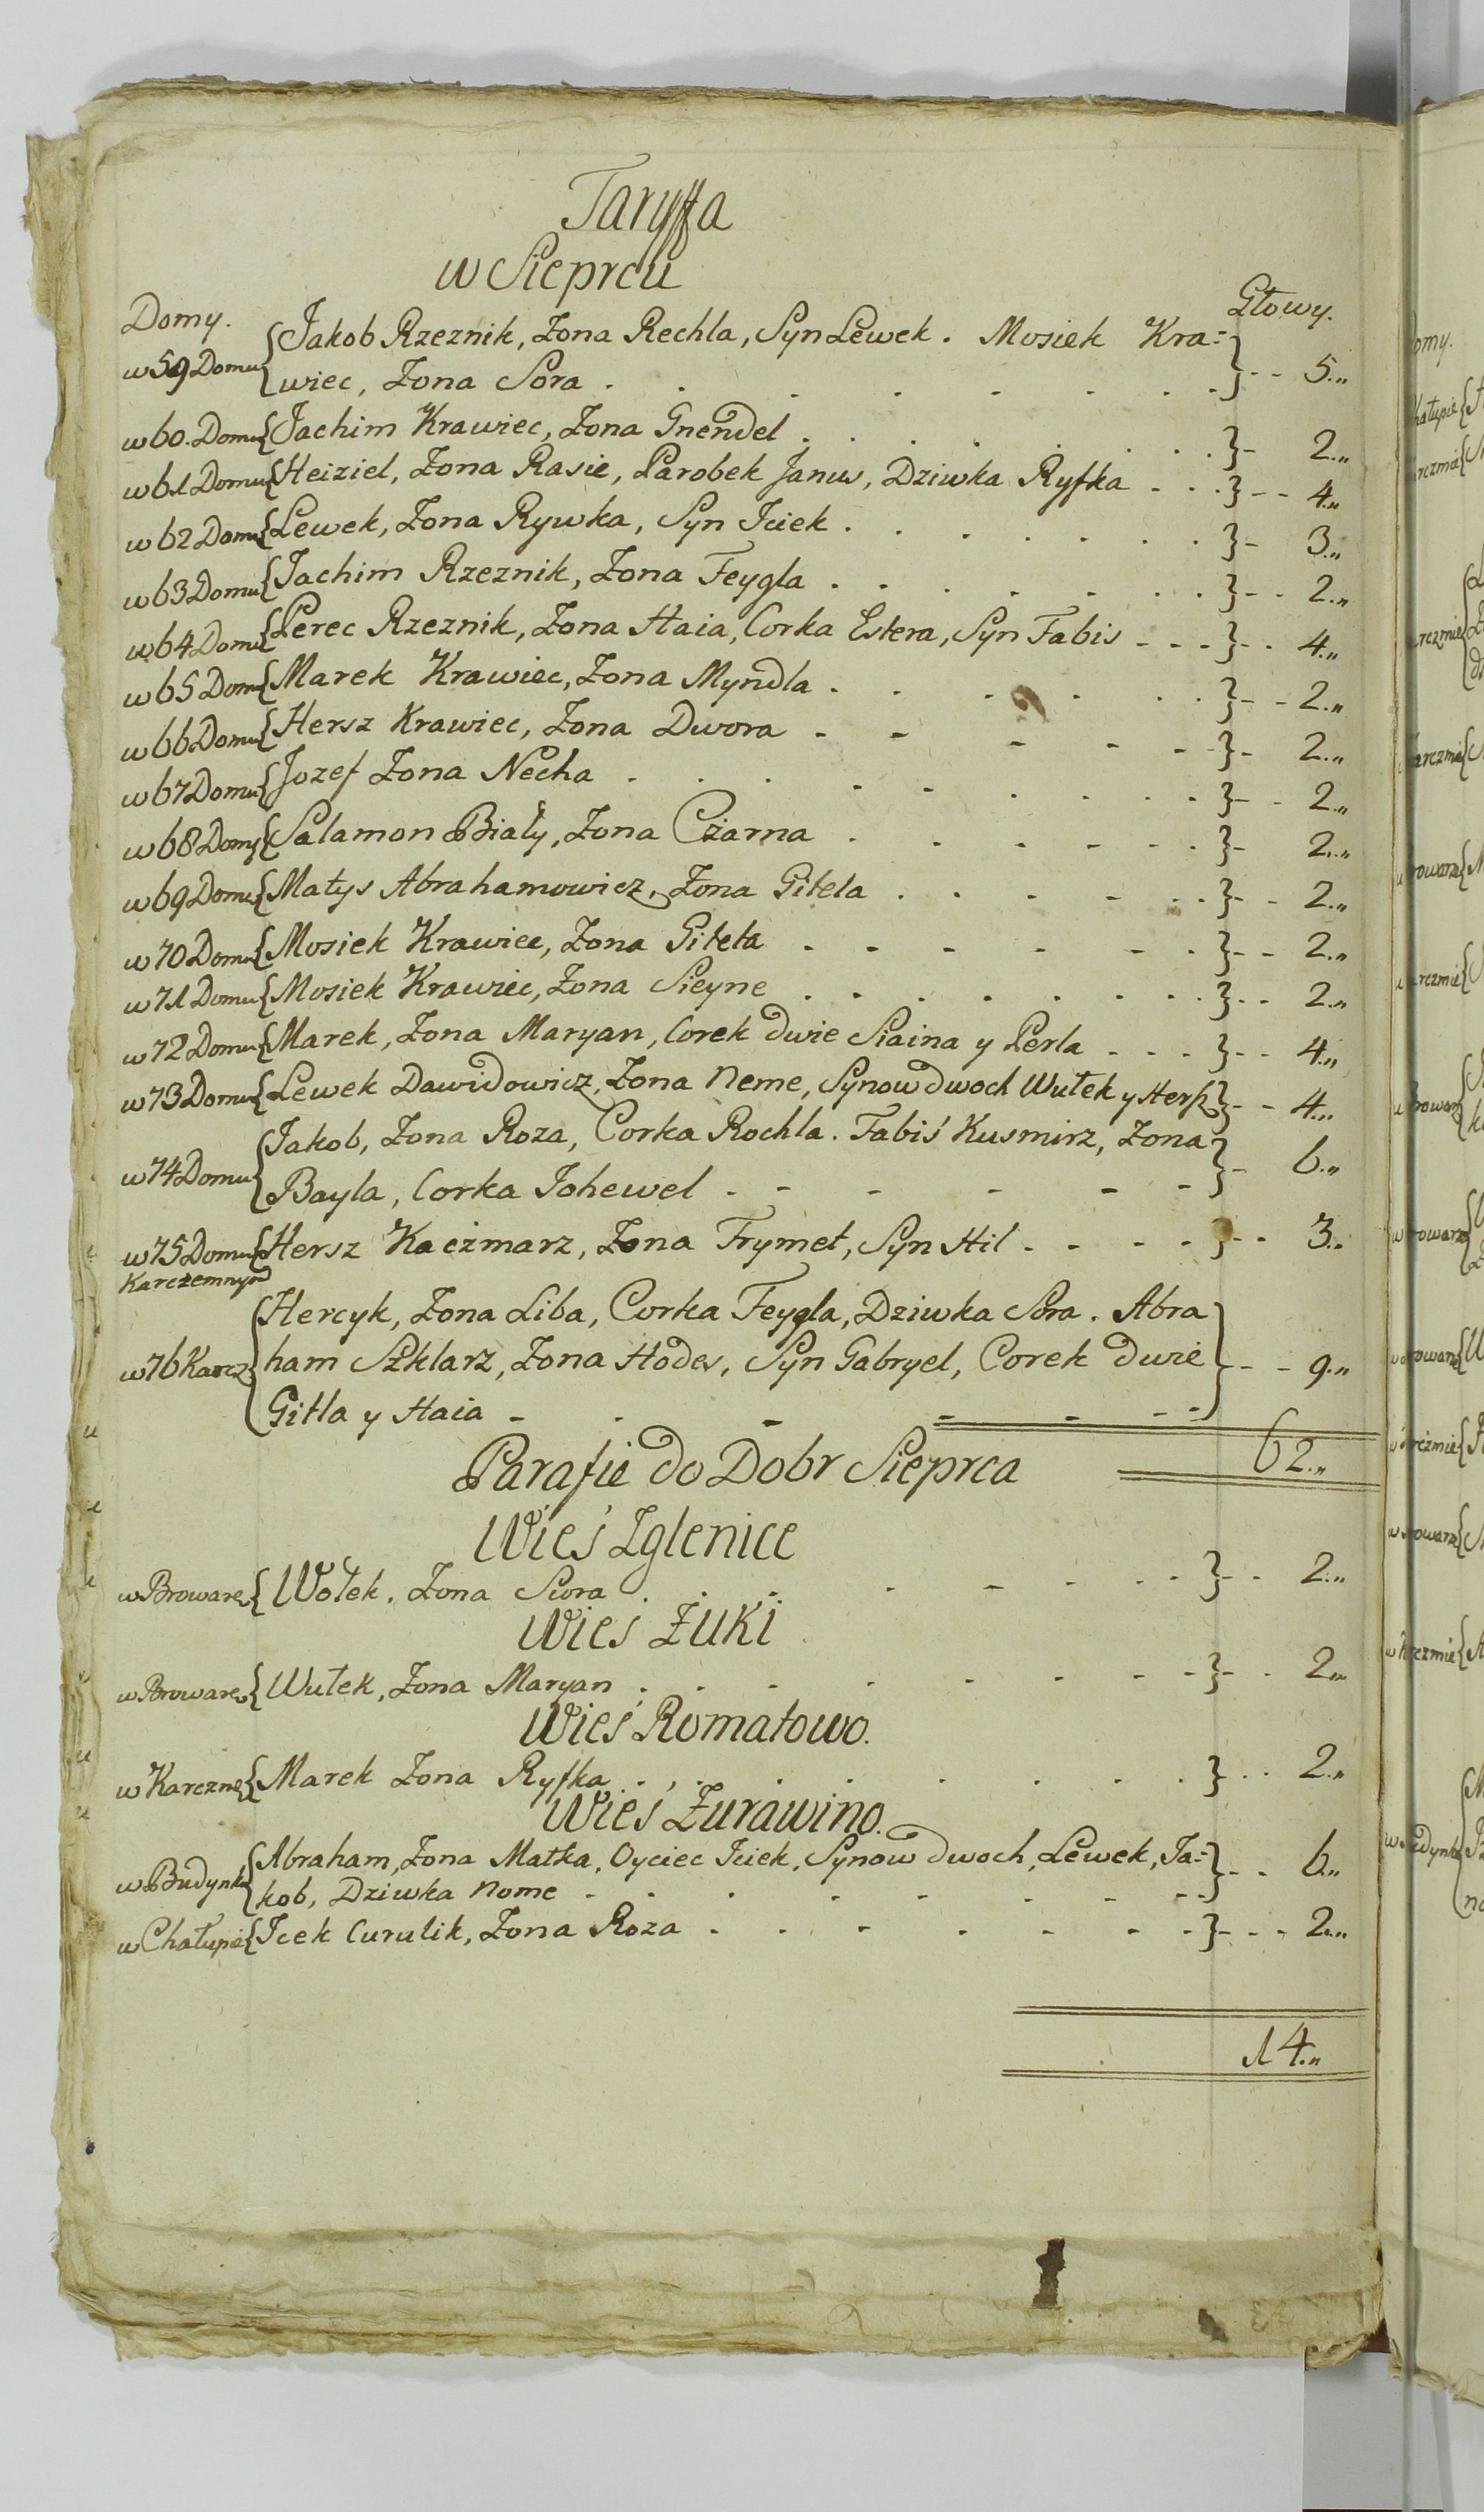 Taryffa
w Sieprcu
Domy. Głowy.
w 59 Domu { Jakob Rzeznik, Zona Rechla, Syn Lewek. Mosiek Kra=
wiec, Zona Sora } 5.
w 60. Domu { Jachim Krawiec, Zona Gnendel } 2.
w 61 Domu { Heiziel, Zona Rasie, Parobek Janus, Dziwka Ryfka } 4.
w 62 Domu { Lewek, Zona Rywka, Syn Iciek } 3.
w 63 Domu { Jachim Rzeznik, Zona Feygla } 2.
w 64 Domu { Perec Rzeznik, Zona Haia, Corka Estera, Syn Fabis } 4.
w 65 Domu { Marek Krawiec, Zona Myndla } 2.
w 66 Domu { Hersz Krawiec, Zona Dwora } 2.
w 67 Domu { Jozef Zona Necha } 2.
w 68 Domu { Salamon Biały, Zona Czarna } 2.
w 69 Domu { Matys Abrahamowicz, Zona Gitela } 2.
w 70 Domu { Mosiek Krawiec, Zona Gitela } 2.
w 71 Domu { Mosiek Krawiec, Zona Sieyne } 2.
w 72 Domu { Marek, Zona Maryan, Corek dwie Siaina y Perla } 4.
w 73 Domu { Lewek Dawidowicz, Zona Neme, Synow dwoch Wułek y Hersz } 4.
w 74 Domu { Jakob, Zona Roza, Corka Rochla. Fabiś Kusmirz, Zona
Bayla, Corka Johewel } 6.
w 75 Domu { Hersz Kaczmarz, Zona Frymet, Syn Hil } 3.
Karczemnym
w 76 Karcz { Hercyk, Zona Liba, Corka Feygla, Dziwka Sora. Abra
ham Szklarz, Zona Hodes, Syn Gabryel, Corek dwie
Gitla y Haia } 9.
62.
Parafie do Dobr Sieprca
Wieś Zglenice
w Browarze { Wołek, Zona Swra } 2.
Wieś Żuki
w Browarze { Wułek, Zona Maryan } 2.
Wieś Romatowo.
w Karczmie { Marek Zona Ryfka } 2.
Wieś Żurawino.
w Budynku { Abraham, Zona Matka, Oyciec Iciek, Synow dwoch, Lewek, Ja=
kob, Dziwka Nome } 6.
w Chałupie { Icek Curulik, Zona Roza } 2.
14.